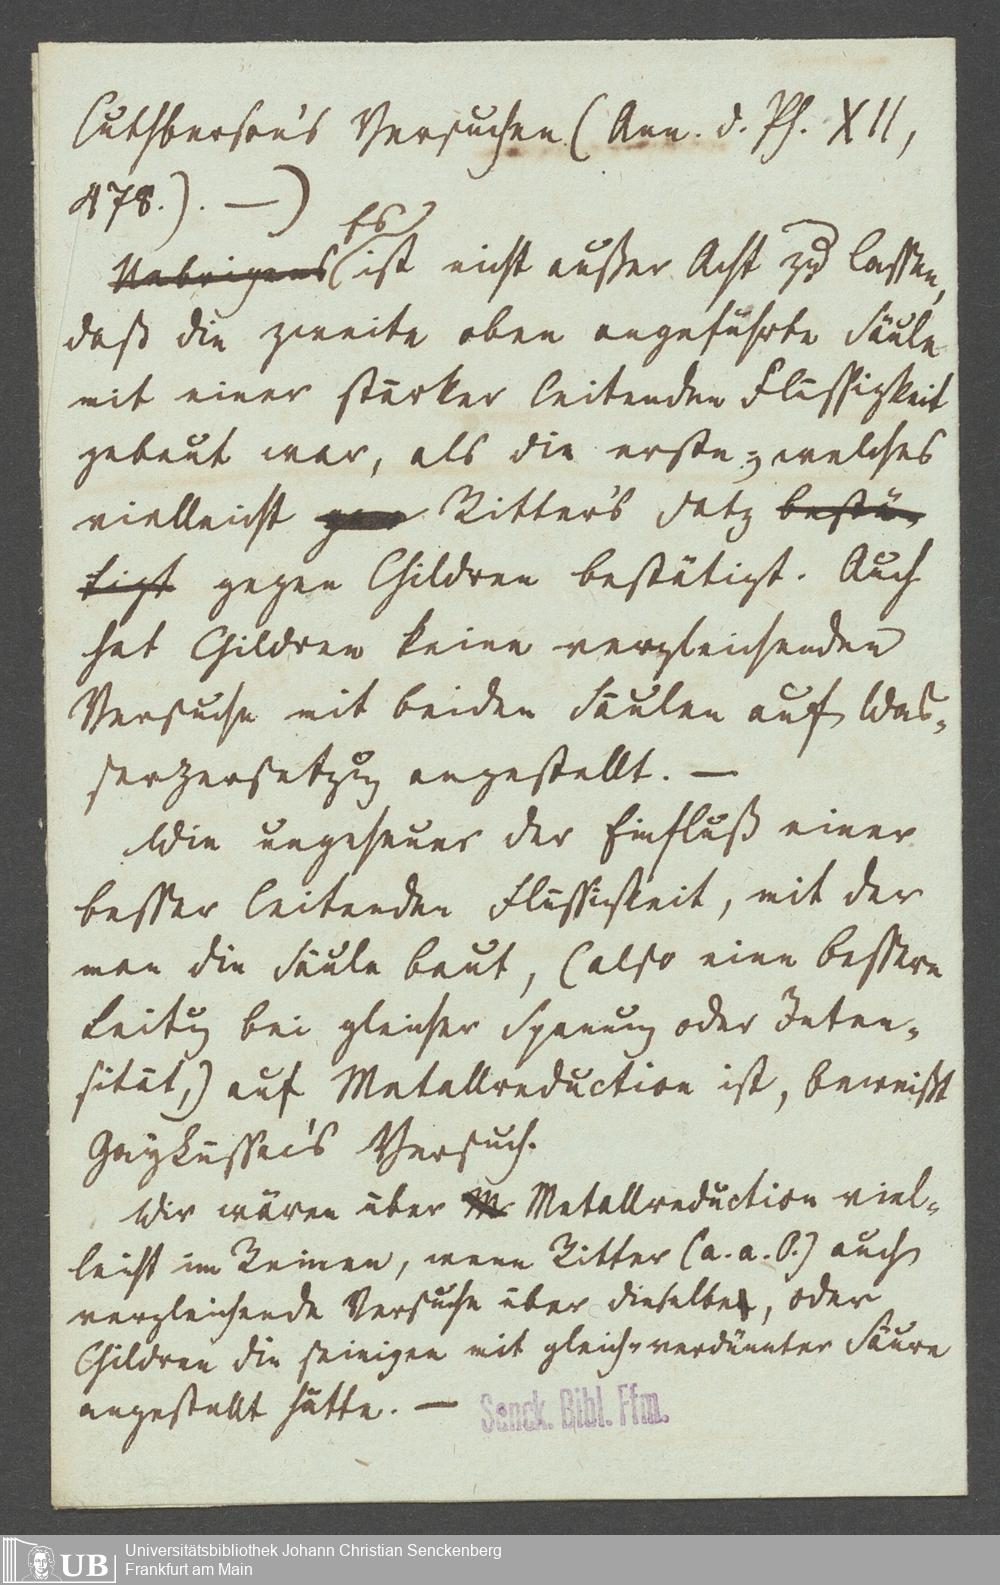 Cuthberson's Versuchen (Ann. d. Ph. XII,
478.). —)
Es
Uebrigens (ist nicht außer Acht zu lassen,
daß die zweite oben angeführte Säule
mit einer stärker leitenden Flüssigkeit
gebaut war, als die erste; welches
vielleicht Ritter's Satz bestä-
tigt gegen Children bestätigt. Auch
hat Children keine vergleichenden
Versuche mit beiden Säulen auf Was-
serzersetzung angestellt. —
Wie ungeheuer der Einfluß einer
besser leitenden Flüssigkeit, mit der
man die Säule baut, (also eine bessere
Leitung bei gleicher Spannung oder Inten-
sität,) auf Metallreduction ist, beweißt
Gaylüssac's Versuch.
Wir wären über M Metallreduction viel-
leicht im Reinen, wenn Ritter (a. a. O.) auch
vergleichende Versuche über dieselbe, oder
Children die seinigen mit gleich-verdünnter Säure
angestellt hätte. —
Senck. Bibl. Ffm.
UB Universitätsbibliothek Johann Christian Senckenberg
Frankfurt am Main